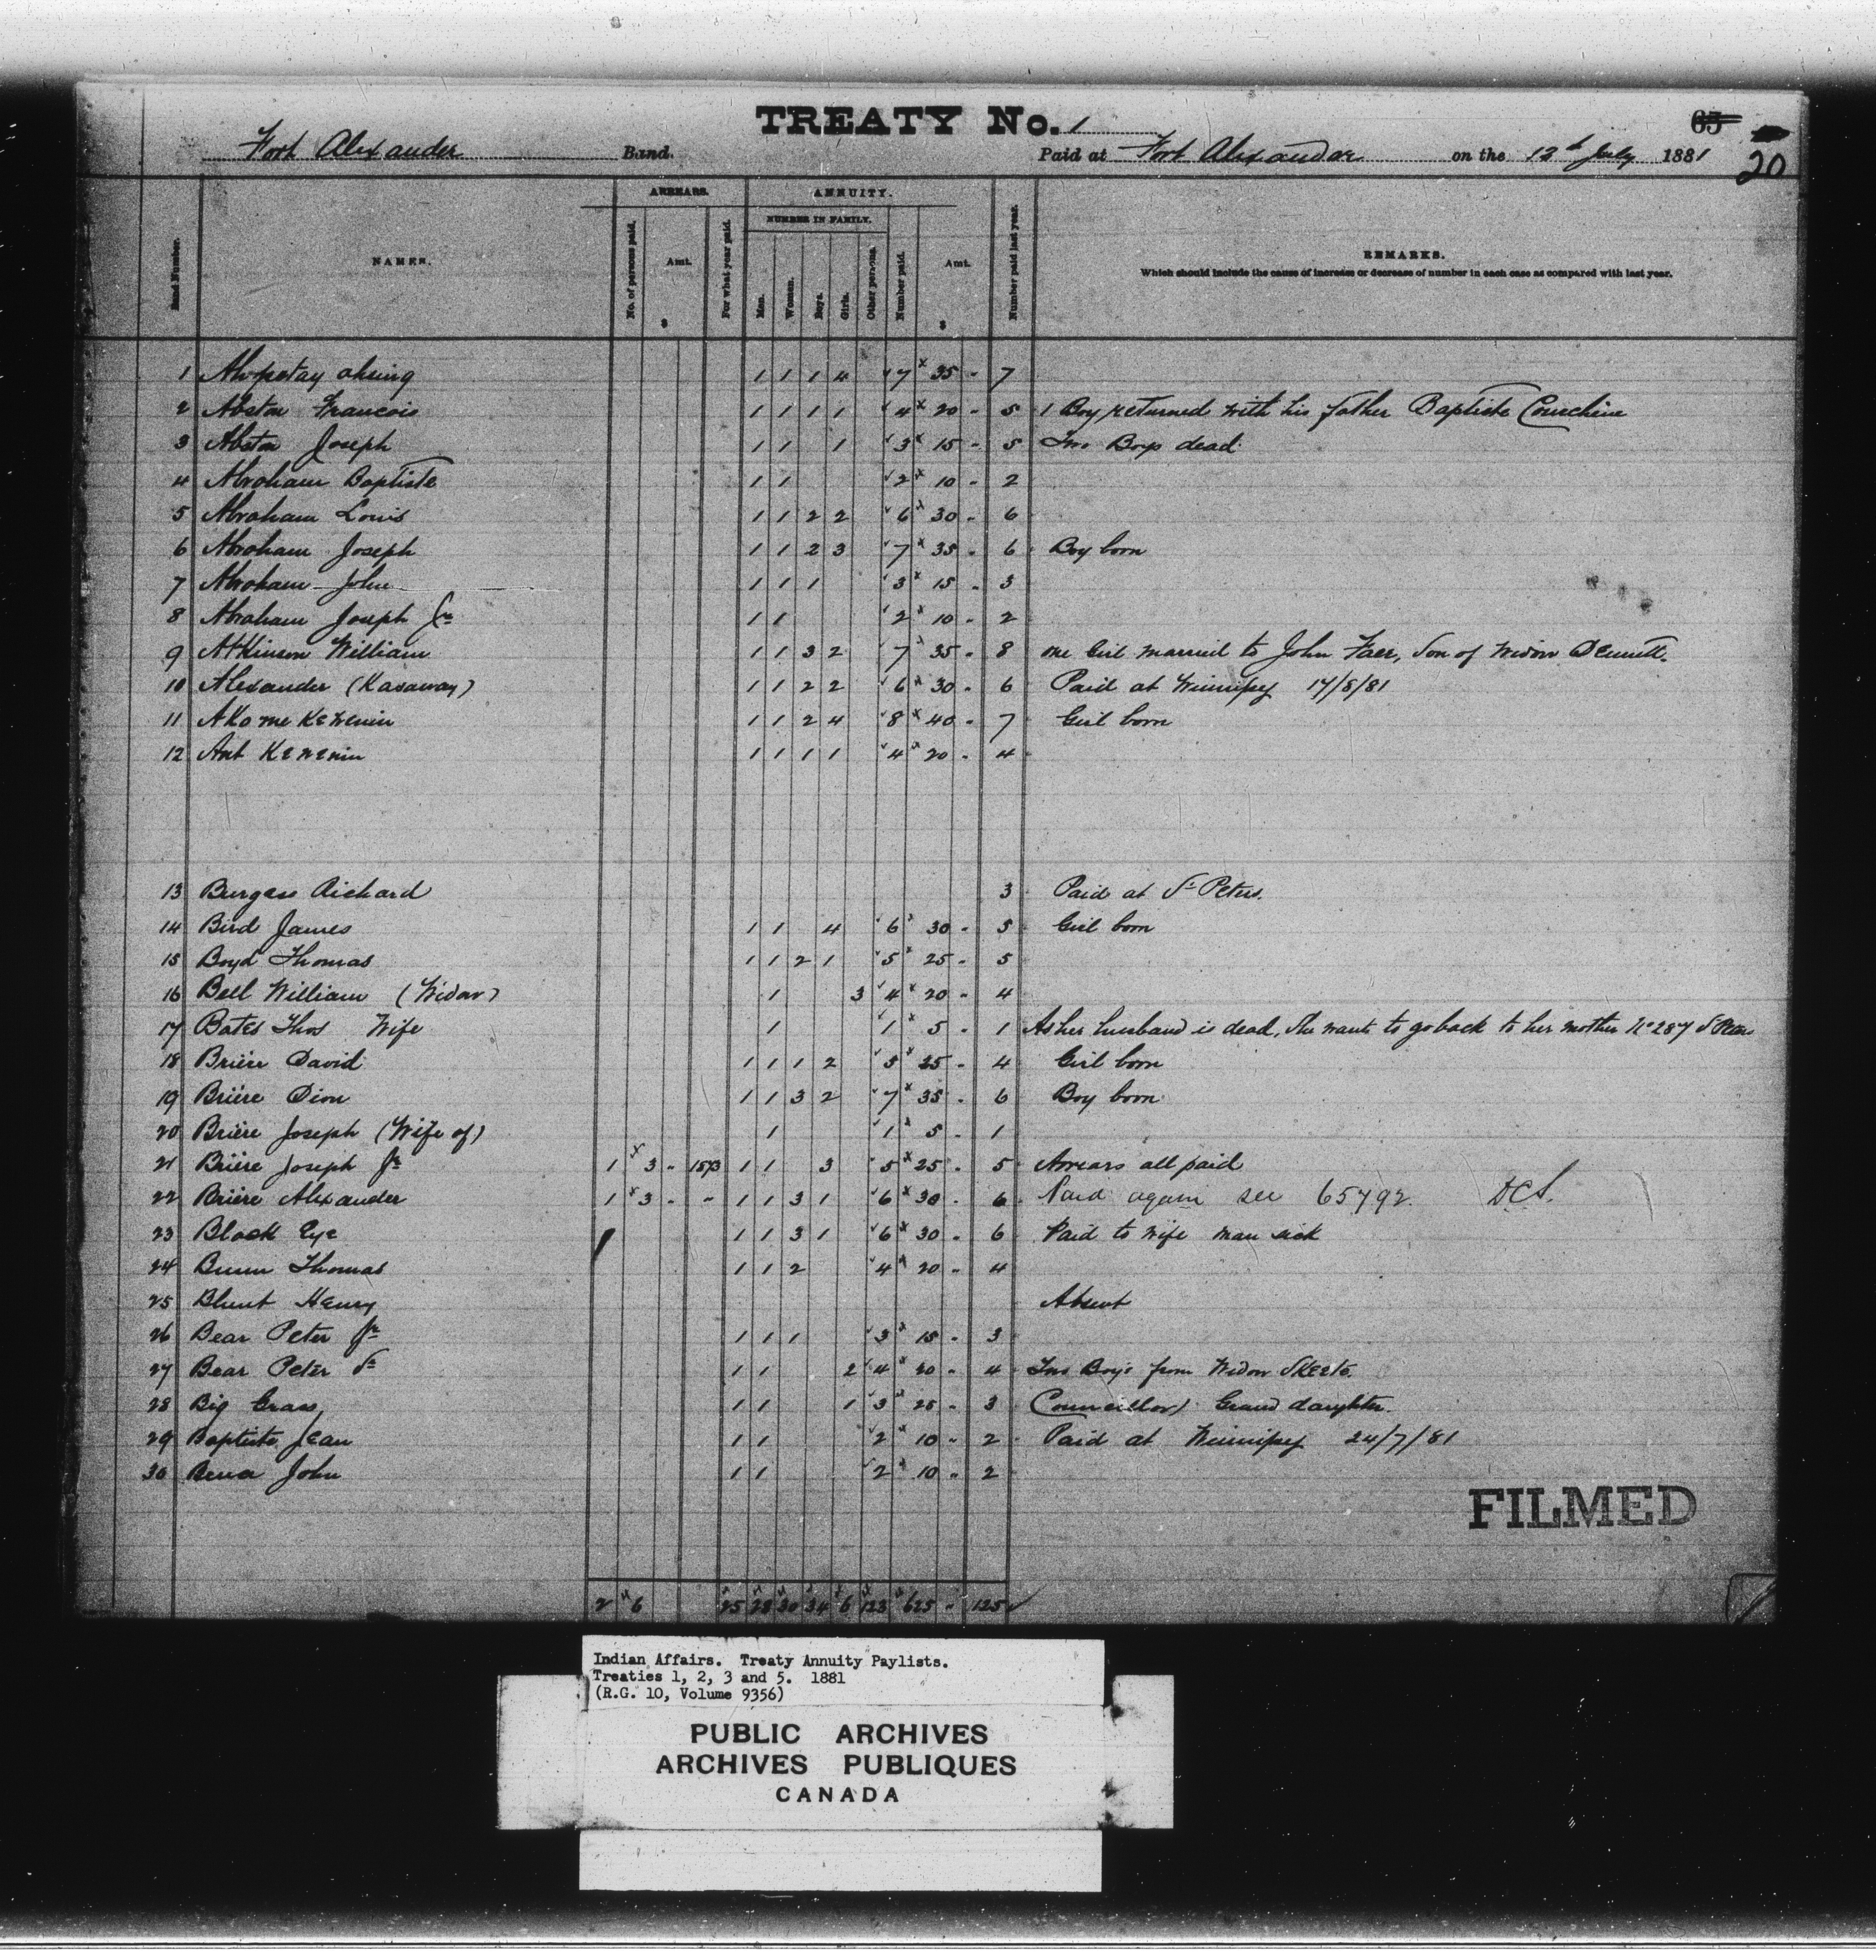 TREATY No. 1
65
20
Fort Alexander Band. Paid at Fort Alexander on the 12th July 1881
ARREARS. ANNUITY.
NUMBER IN FAMILY.
Band Number. NAMES. No. of persons paid. Amt. $ For what year paid. Men. Women. Boys. Girls. Other persons. Number paid. Amt. $ Number paid last year. REMARKS.
Which should include the cause of increase or decrease of number in each case as compared with last year.
1 ohsing 1 1 1 4 7 35 - 7
2 Abston Francois 1 1 1 1 4 20 - 5 1 Boy returned with his father Baptiste Courchene
3 Abston Joseph 1 1 1 3 15 - 5 Two Boys dead
4 Abraham Baptiste 1 1 2 10 - 2
5 Abraham Louis 1 1 2 2 6 30 - 6
6 Abraham Joseph 1 1 2 3 7 35 - 6 Boy born
7 Abraham John 1 1 1 3 15 - 3
8 Abraham Joseph Jr 1 1 2 10 - 2
9 Atkinson William 1 1 3 2 7 35 - 8 one Girl married to John Faer, Son of Widow Dennett.
10 Alexander (Kasaway) 1 1 2 2 6 30 - 6 Paid at Winnipeg 17/8/81
11 Ako me Kewenin 1 1 2 4 8 40 - 7 Girl born
12 Ant Kewenin 1 1 1 1 4 20 - 4
13 Burgess Richard 3 Paid at St Peters.
14 Bird James 1 1 4 6 30 - 5 Girl born
15 Boyd Thomas 1 1 2 1 5 25 - 5
16 Bell William (Widow) 1 3 4 20 - 4
17 Bates Thos Wife 1 1 5 - 1 As her husband is dead, she wants to go back to her mother No 287 St Peters
18 Brière David 1 1 1 2 5 25 - 4 Girl born
19 Brière Dion 1 1 3 2 7 35 - 6 Boy born
20 Brière Joseph (Wife of) 1 1 5 - 1
21 Brière Joseph Jr 1 3 - 1873 1 1 3 5 25 - 5 Arrears all paid
22 Brière Alexander 1 3 - " 1 1 3 1 6 30 - 6 Paid again see 65792. DCS.
23 Black Eye 1 1 3 1 6 30 - 6 Paid to wife man sick
24 Bunn Thomas 1 1 2 4 20 - 4
25 Blunt Henry Absent
26 Bear Peter Jr 1 1 1 3 15 - 3
27 Bear Peter Sr 1 1 2 4 20 - 4 Two Boys from Widow Skeete.
28 Big Grass 1 1 1 3 25 - 3 (Councillor) Grand daughter.
29 Baptiste Jean 1 1 2 10 - 2 Paid at Winnipeg 24/7/81
30 John 1 1 2 10 - 2
2 6 25 28 30 34 6 123 625 - 125
FILMED
Indian Affairs. Treaty Annuity Paylists.
Treaties 1, 2, 3 and 5. 1881
(R.G. 10, Volume 9356)
PUBLIC ARCHIVES
ARCHIVES PUBLIQUES
CANADA